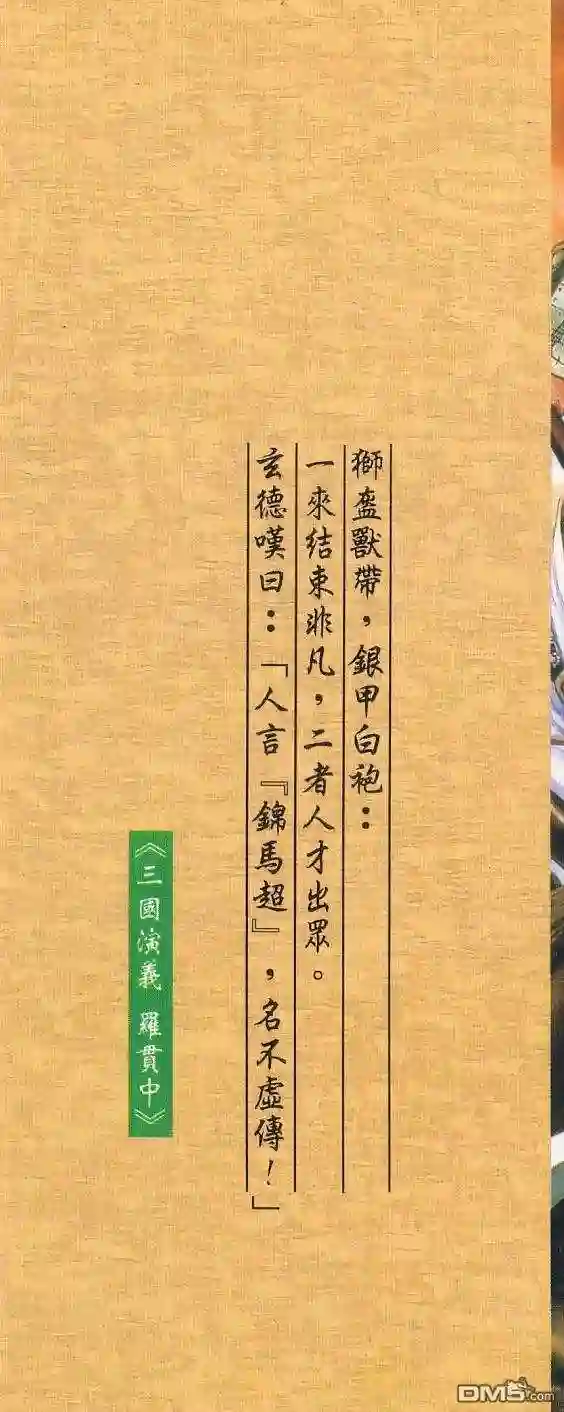 獅盔獸帶，銀甲白袍：
一來結束非凡，二者人才出眾。
玄德嘆曰：「人言『錦馬超』，名不虛傳！」
《三國演義 羅貫中》
DM5.com